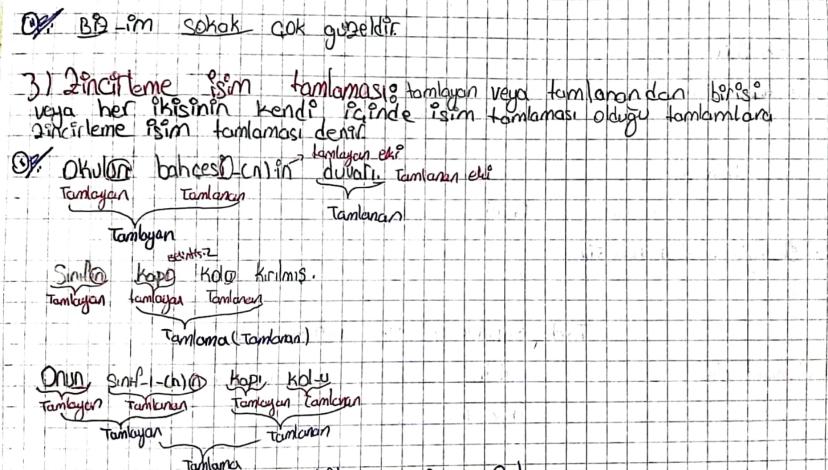 Biz-im sokak çok güzeldir.
3) Zincirleme isim tamlaması: tamlayan veya tamlanandan birisi
veya her ikisinin kendi içinde isim tamlaması olduğu tamlamlara
zincirleme isim tamlaması denir
tamlayan eki
Okulun bahçesi-(n)in duvarı. Tamlanan eki
Tamlayan Tamlanan
Tamlanan
Tamlayan
Belirtisiz
Sınıfın kapı kolu kırılmış.
Tamlayan tamlayan Tamlanan
Tamlama (Tamlanan)
Onun sınıf-ı-(n)ın kapı kol-u
Tamlayan Tamlanan Tamlayan tamlanan
Tamlayan Tamlanan
Tamlama